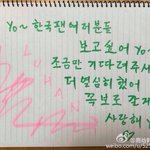 yo~ 한국팬여러분들
보고싶어 yo~
조금만 기다려주세
더 열심히했어
꼭보로 갈게
사랑해 y
weibo.com/u/52